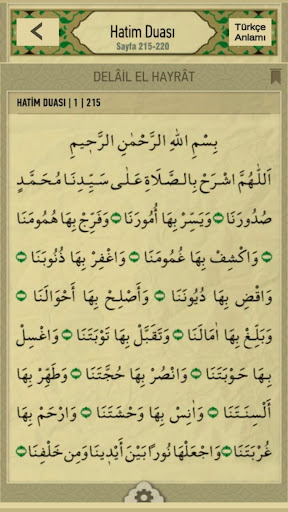 Hatim Duası
Sayfa 215-220
Türkçe
Anlamı
DELÂİL EL HAYRÂT
HATİM DUASI | 1 | 215
بِسْمِ اللهِ الرَّحْمٰنِ الرَّحٖيمِ
اَللّٰهُمَّ اشْرَحْ بِالصَّلَاةِ عَلٰى سَيِّدِنَا مُحَمَّدٍ
صُدُورَنَا وَيَسِّرْ بِهَا أُمُورَنَا وَفَرِّجْ بِهَا هُمُومَنَا
وَاكْشِفْ بِهَا غُمُومَنَا وَاغْفِرْ بِهَا ذُنُوبَنَا
وَاقْضِ بِهَا دُيُونَنَا وَأَصْلِحْ بِهَا أَحْوَالَنَا
وَبَلِّغْ بِهَا اٰمَالَنَا وَتَقَبَّلْ بِهَا تَوْبَتَنَا وَاغْسِلْ
بِهَا حَوْبَتَنَا وَانْصُرْ بِهَا حُجَّتَنَا وَطَهِّرْ بِهَا
أَلْسِنَتَنَا وَاٰنِسْ بِهَا وَحْشَتَنَا وَارْحَمْ بِهَا
غُرْبَتَنَا وَاجْعَلْهَا نُورًا بَيْنَ أَيْدٖينَا وَمِنْ خَلْفِنَا